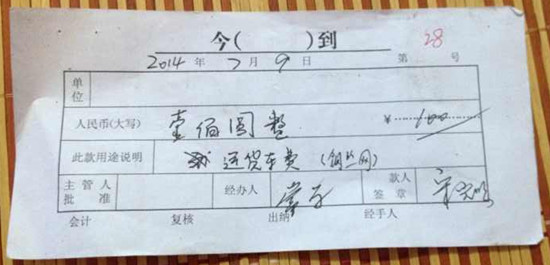 今( )到
2014 年 7 月 9 日 第 28 号
单位
人民币(大写) 壹佰圆整 ¥ 100
此款用途说明 送货车费 (钢丝网)
主管人批准 经办人 款人签章
会计 复核 出纳 经手人